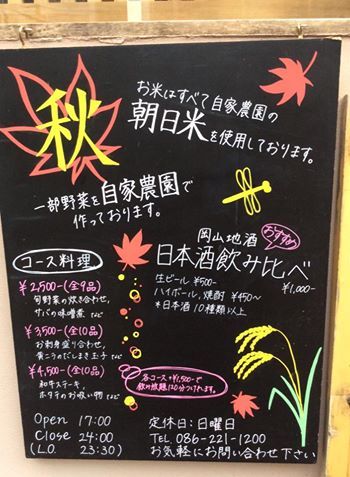 秋
お米はすべて自家農園の
朝日米を使用しております。
一部野菜を自家農園で
作っております。
コース料理
¥2,500-(全9品)
旬野菜の炊き合わせ,
サバの味噌煮 など
¥3,500-(全10品)
お刺身盛り合わせ,
黄ニラのだしまき玉子 など
¥4,500-(全10品)
和牛ステーキ,
ホタテのお吸い物 など
岡山地酒 おすすめ
日本酒飲み比べ
¥1,000-
生ビール ¥500-
ハイボール,焼酎 ¥450~
*日本酒10種類以上
各コース+¥1,500-で
飲み放題120分つけれます。
Open 17:00
Close 24:00
(L.O. 23:30)
定休日:日曜日
TEL. 086-221-1200
お気軽にお問い合わせ下さい